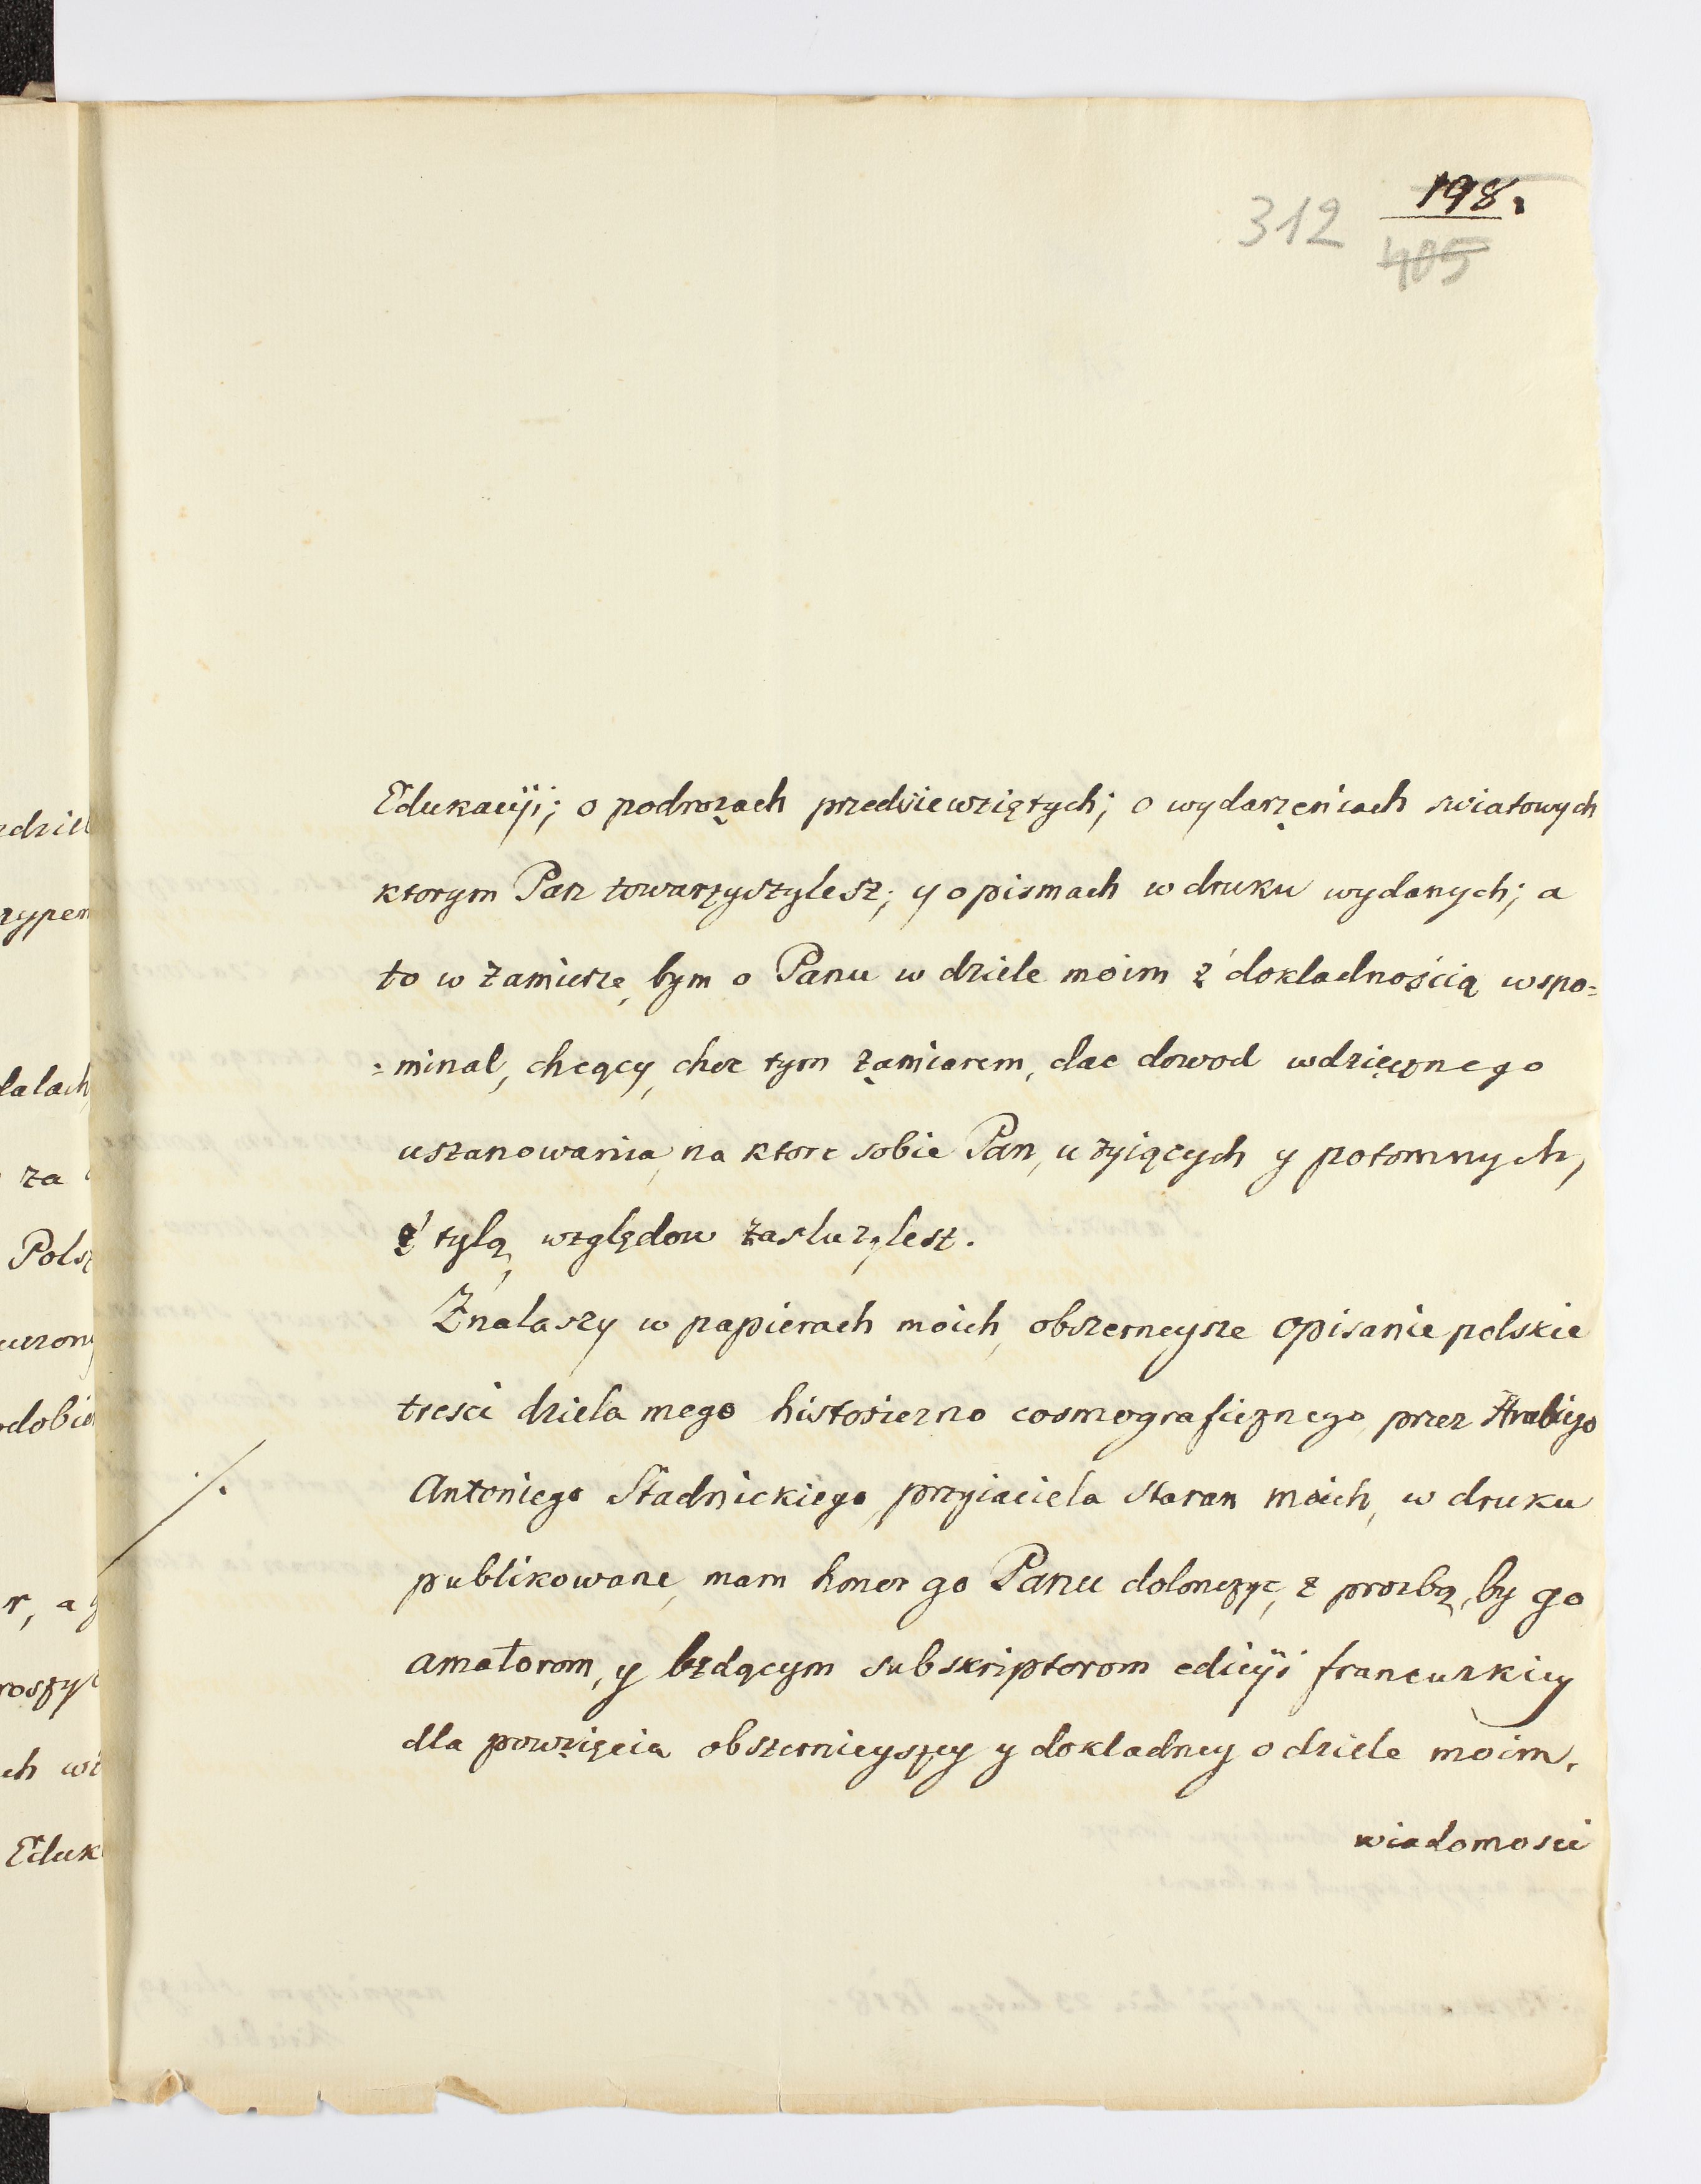 198.
312
405
Edukacÿi; o podrozach przedsiewziętych; o wydarzeniach swiatowych
ktorym Pan towarzyszylesz; y o pismach w druku wydanych; a
to w zamierze, bym o Panu w dziele moim z dokladnością wspo=
=minal, chcący, choc tym zamiarem, dac dowod wdzięcznego
uszanowania, na ktore sobie Pan, u zyiących y potomnych,
z tylą względow zasluzylesz.
Znalaszy w papierach moich, obszerneysze opisanie polskie
tresci dziela mego historiczno cosmograficznego, przez Hrabiego
Antoniego Stadnickiego, przyiaciela staran moich, w druku
publikowane, mam honor go Panu dolonczyc, z prozbą, by go
amatorom, y bzdącym subskriptorom edicÿi francuzkiey
dla powzięcia obszernieyszey y dokladney o dziele moim.
wiadomosci